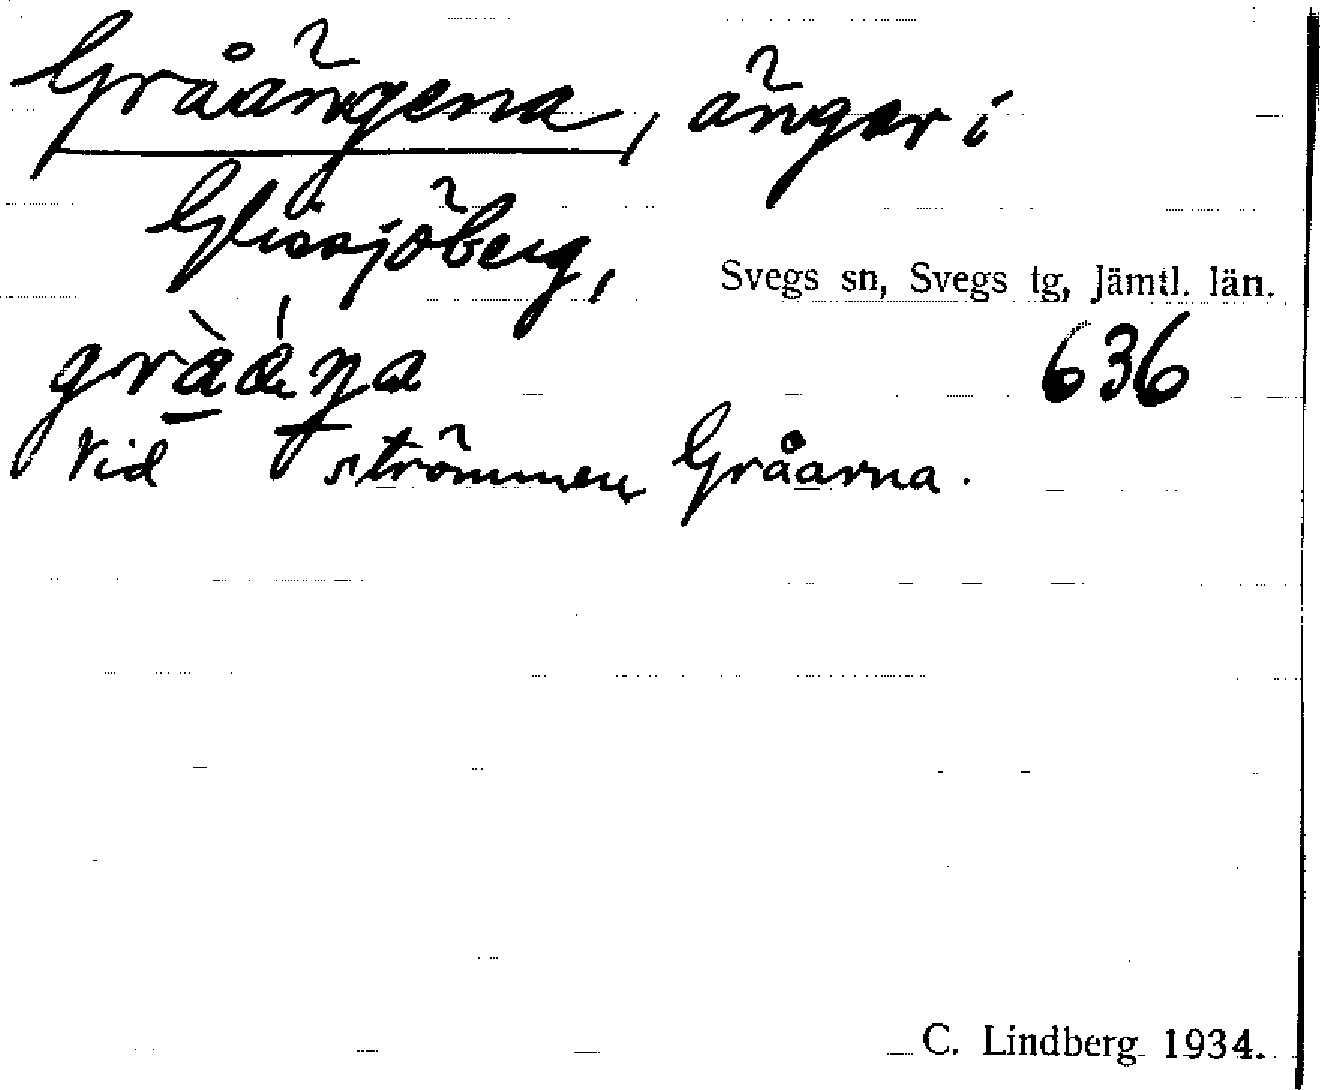 Gråängena, ängar i
Glissjöberg,
Svegs sn, Svegs tg, Jämtl. län.
636
Vid strömmen Gråarna.
C. Lindberg 1934.